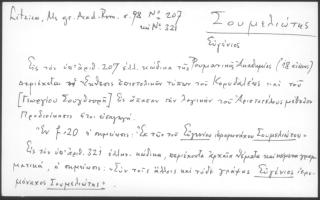 Litzica, Ms gr. Acad. Rom. σ. 98 Nº 207
καὶ Nº 321
Σουμελιώτης
Εὐγένιος
Εἰς τὸν ὑπ' ἀριθ. 207 ἑλλ. κώδικα τῆς Ρουμανικῆς Ἀκαδημίας (18 αἰῶνος)
περιέχεται ἡ Ἔκθεσις ἐπιστολικῶν τύπων τοῦ Κορυδαλέως καὶ τοῦ
[Γεωργίου Σουγδουρῆ] Εἰς ἅπασαν τὴν λογικὴν τοῦ Ἀριστοτέλους μέθοδον
Προδιοίκησις ἤτοι εἰσαγωγή.
Ἐν f. 20 ἡ σημείωσις: Ἐκ τῶν τοῦ Εὐγενίου ἱερομονάχου Σουμελιώτου".
Εἰς τὸν ὑπ' ἀριθ. 321 ἑλλην. κώδικα, περιέχοντα θέματα καὶ
ματικά, ἡ σημείωσις: "Σὺν τοῖς ἄλλοις καὶ τόδε γράφης Εὐγένιος ἱερο-
μόναχος Σουμελιώτης".